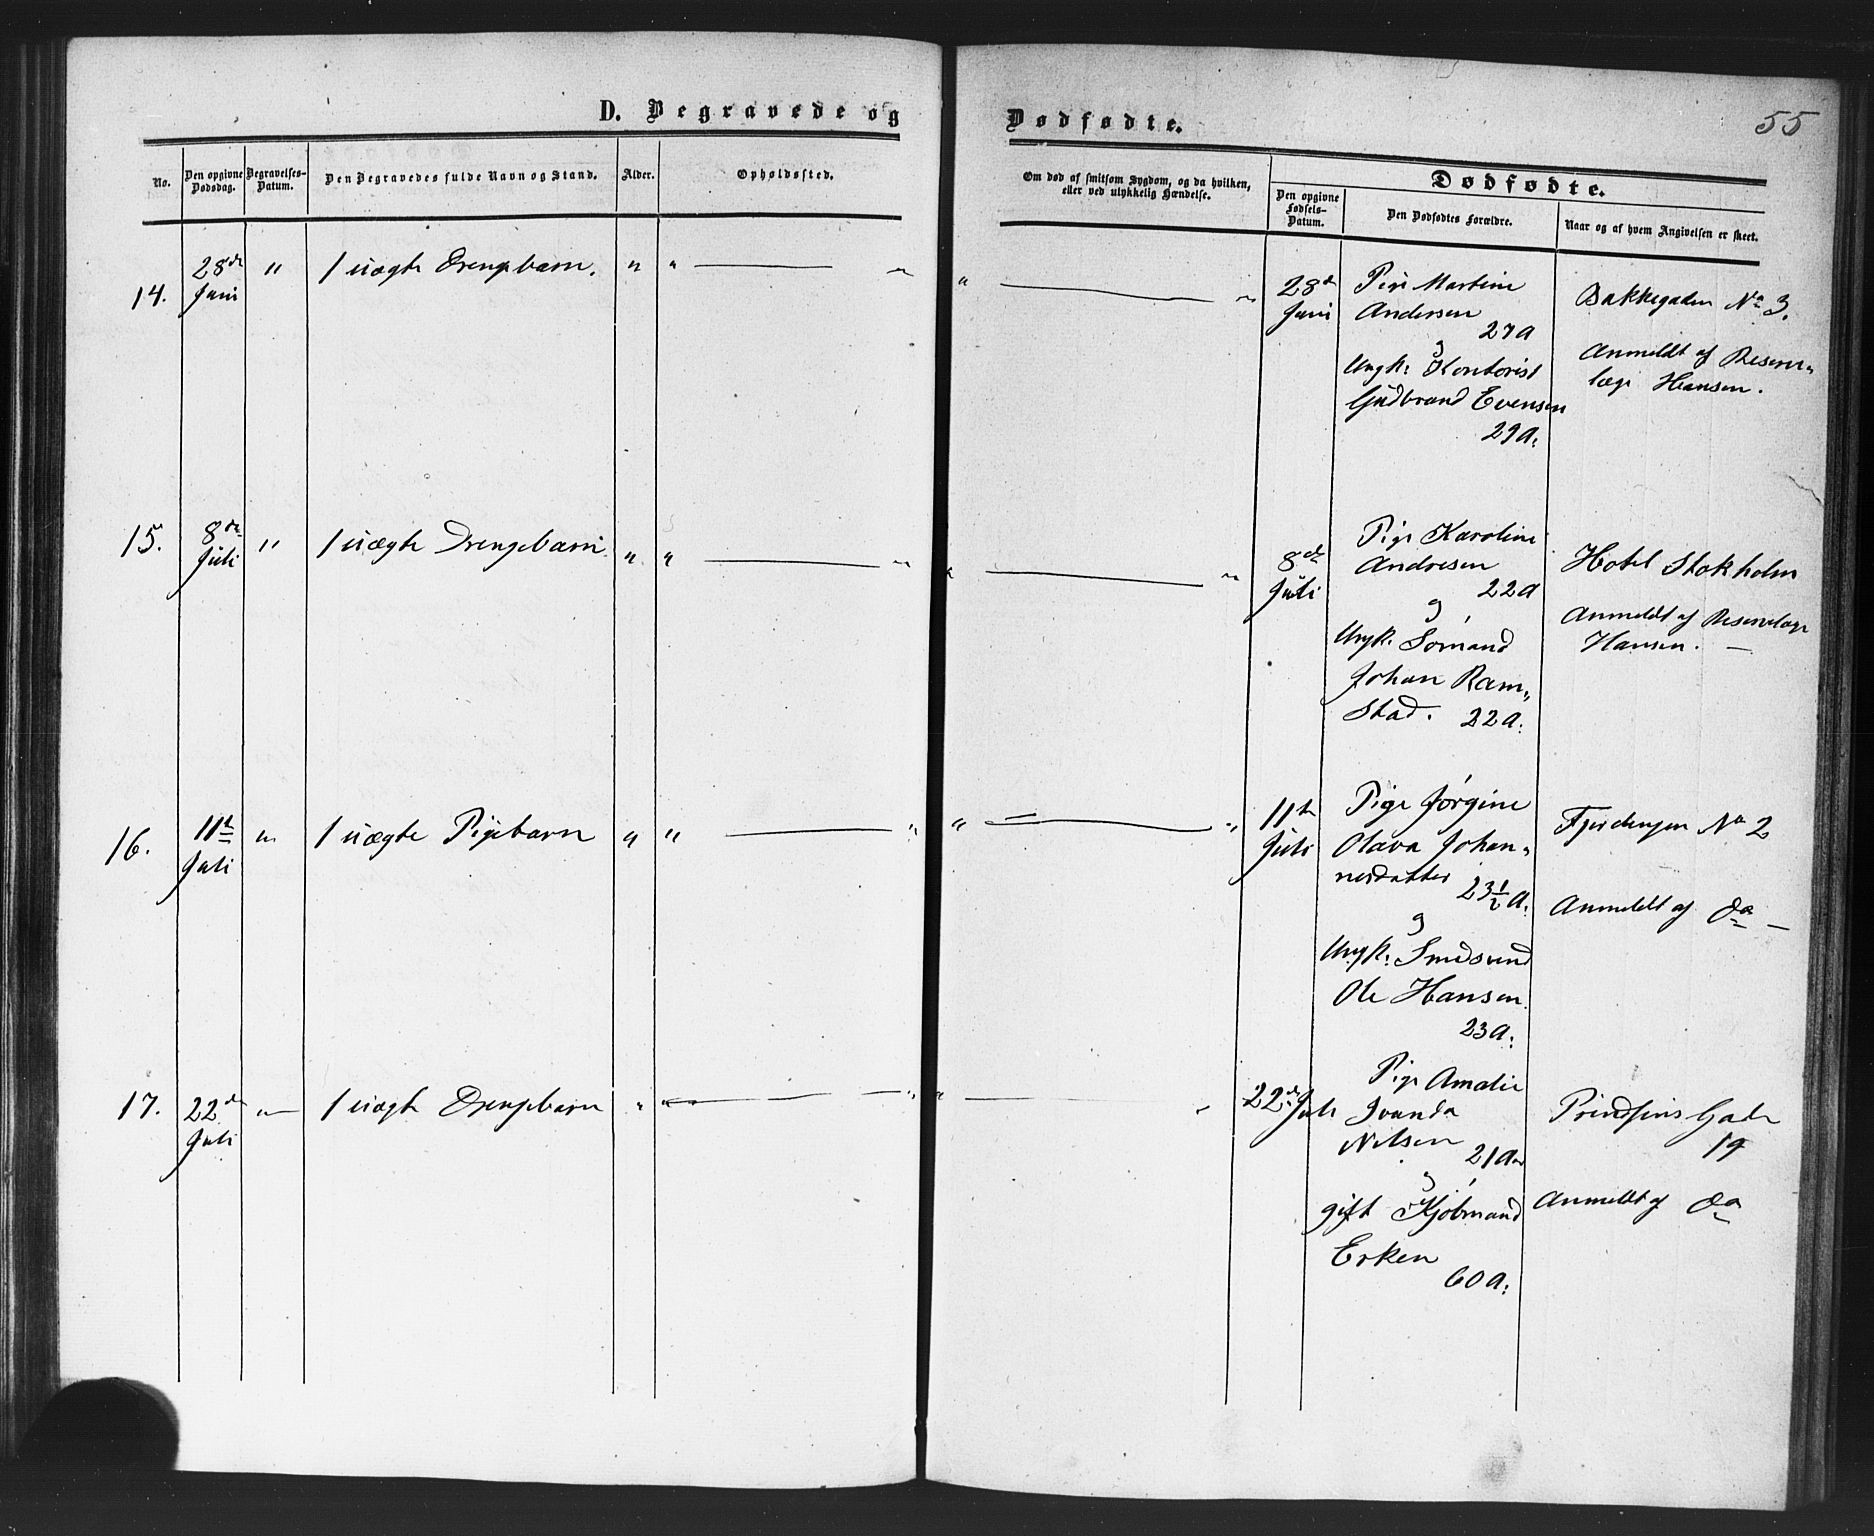 D. Begravede og
Dødfødte.
55
No.
Den opgivne Dødsdag.
Begravelses-Datum.
Den Begravedes fulde Navn og Stand.
Alder.
Opholdssted.
Om død af smitsom Sygdom, og da hvilken, eller ved ulykkelig Hændelse.
Dødfødte.
Den opgivne Fødsels-Datum.
Den Dødfødtes Forældre.
Naar og af hvem Angivelsen er skeet.
14.
28de
Juni
"
1 uægte Drengebarn.
"
"
"
28de
Juni
Pige Martine
Andersen
27 A
og
Ungk: Kontorist
Gudbrand Evensen
29 A:
Bakkegaden No 3.
Anmeldt af Reserve„
læge Hansen.
15.
8de
Juli
"
1 uægte Drengebarn
"
"
"
8de
Juli
Pige Karoline
Andresen
22 A
og
Ungk: Sømand
Johan Ram„
stad. 22 A:
Hotel Stokholm
Anmeldt af Reservelæge
Hansen. —
16.
11te
Juli
"
1 uægte Pigebarn
"
"
"
11te
Juli
Pige Jørgine
Olava Johan„
nesdatter
23½ A:
og
Ungk: Smedsvend
Ole Hansen
23 A:
Fjerdingen No 2
Anmeldt af Do —
17.
22de
Juli
"
1 uægte Drengebarn
"
"
"
22de Juli
Pige Amalie
Ivanda
Nilsen
21 Aar
og
gift Kjøbmand
Erken
60 A:
Prindsens Gade
19
Anmeldt af Do